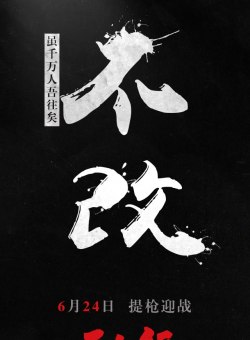 虽千万人吾往矣
不改
6月24日 提枪迎战